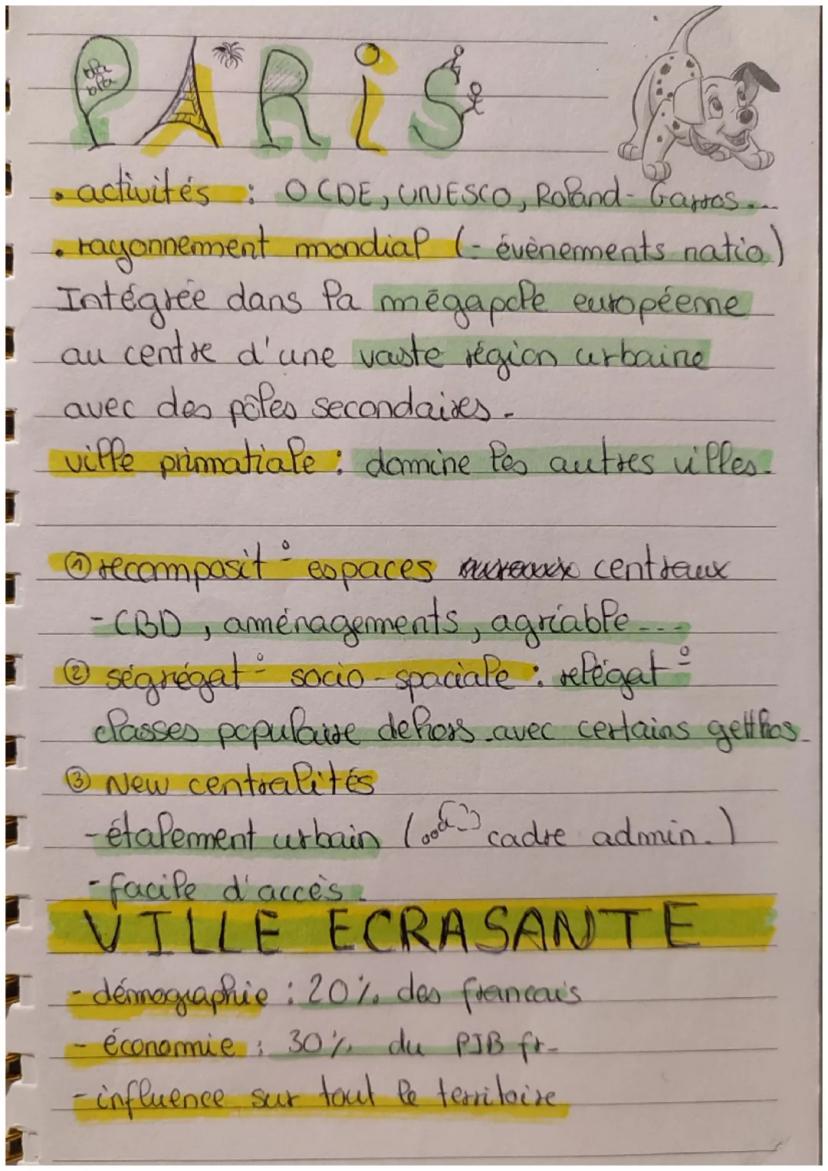 PARiS
bla
bla
• activités : OCDE, UNESCO, Roland-Garros...
• rayonnement mondial (- évènements natio)
Intégrée dans la mégapole européenne
au centre d'une vaste région urbaine
avec des pôles secondaires.
ville primatiale : domine les autres villes.
① recomposit° espaces centraux
- CBD, aménagements, agriable...
② ségrégat° socio-spaciale : relégat°
classes populaire dehors avec certains getthos
③ New centralités
- étalement urbain ( cadre admin.)
- facile d'accès.
VILLE ECRASANTE
- démographie : 20% des francais
- économie : 30% du PIB fr-
- influence sur tout le territoire